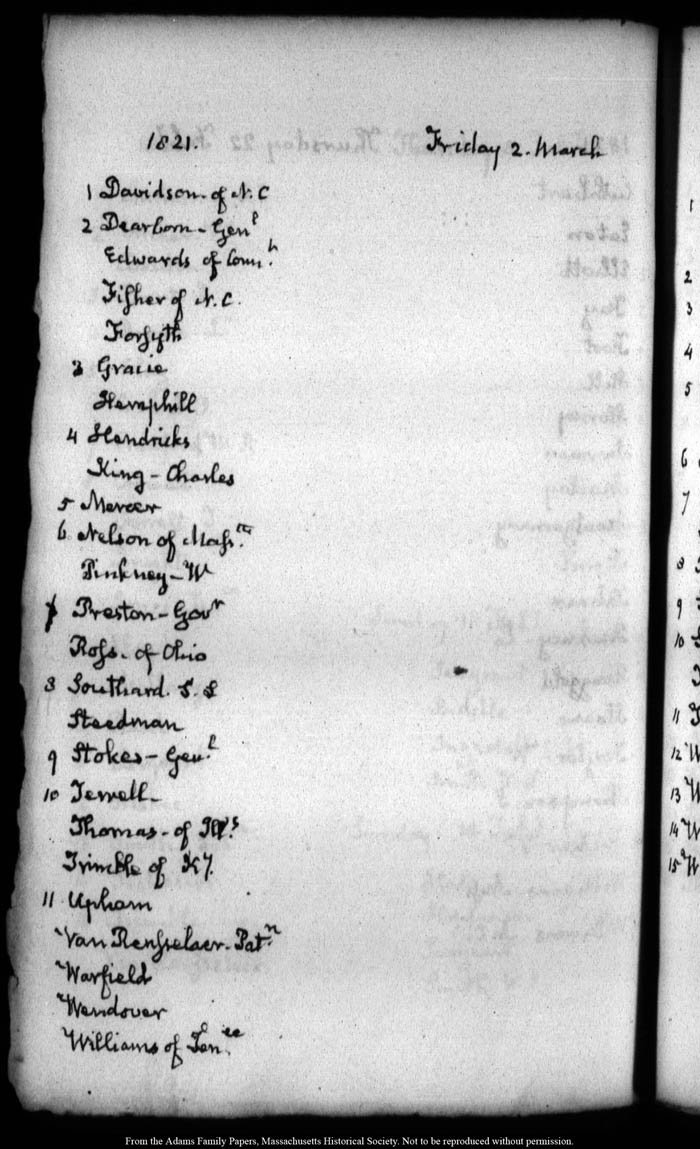 1821. Friday 2. March
1 Davidson. of N. C
2 Dearborn - Genl
Edwards of Connt.
Fisher of N. C.
Forsyth
3 Gracie
Hemphill
4 Hendricks
King - Charles
5 Mercer
6 Nelson of Massts.
Pinkney - W
7 Preston - Govr
Ross. of Ohio
8 Southard. S. L
Steedman
9 Stokes - Genl.
10 Terrell -
Thomas - of Ills
Trimble of Ky.
11 Upham
Van Rensselaer. Patn.
Warfield
Wendover
Williams of Tenee.
1
2
3
4
5
6
7
8
9
10
11
12 W
13 W
14 W
15 W
From the Adams Family Papers, Massachusetts Historical Society. Not to be reproduced without permission.